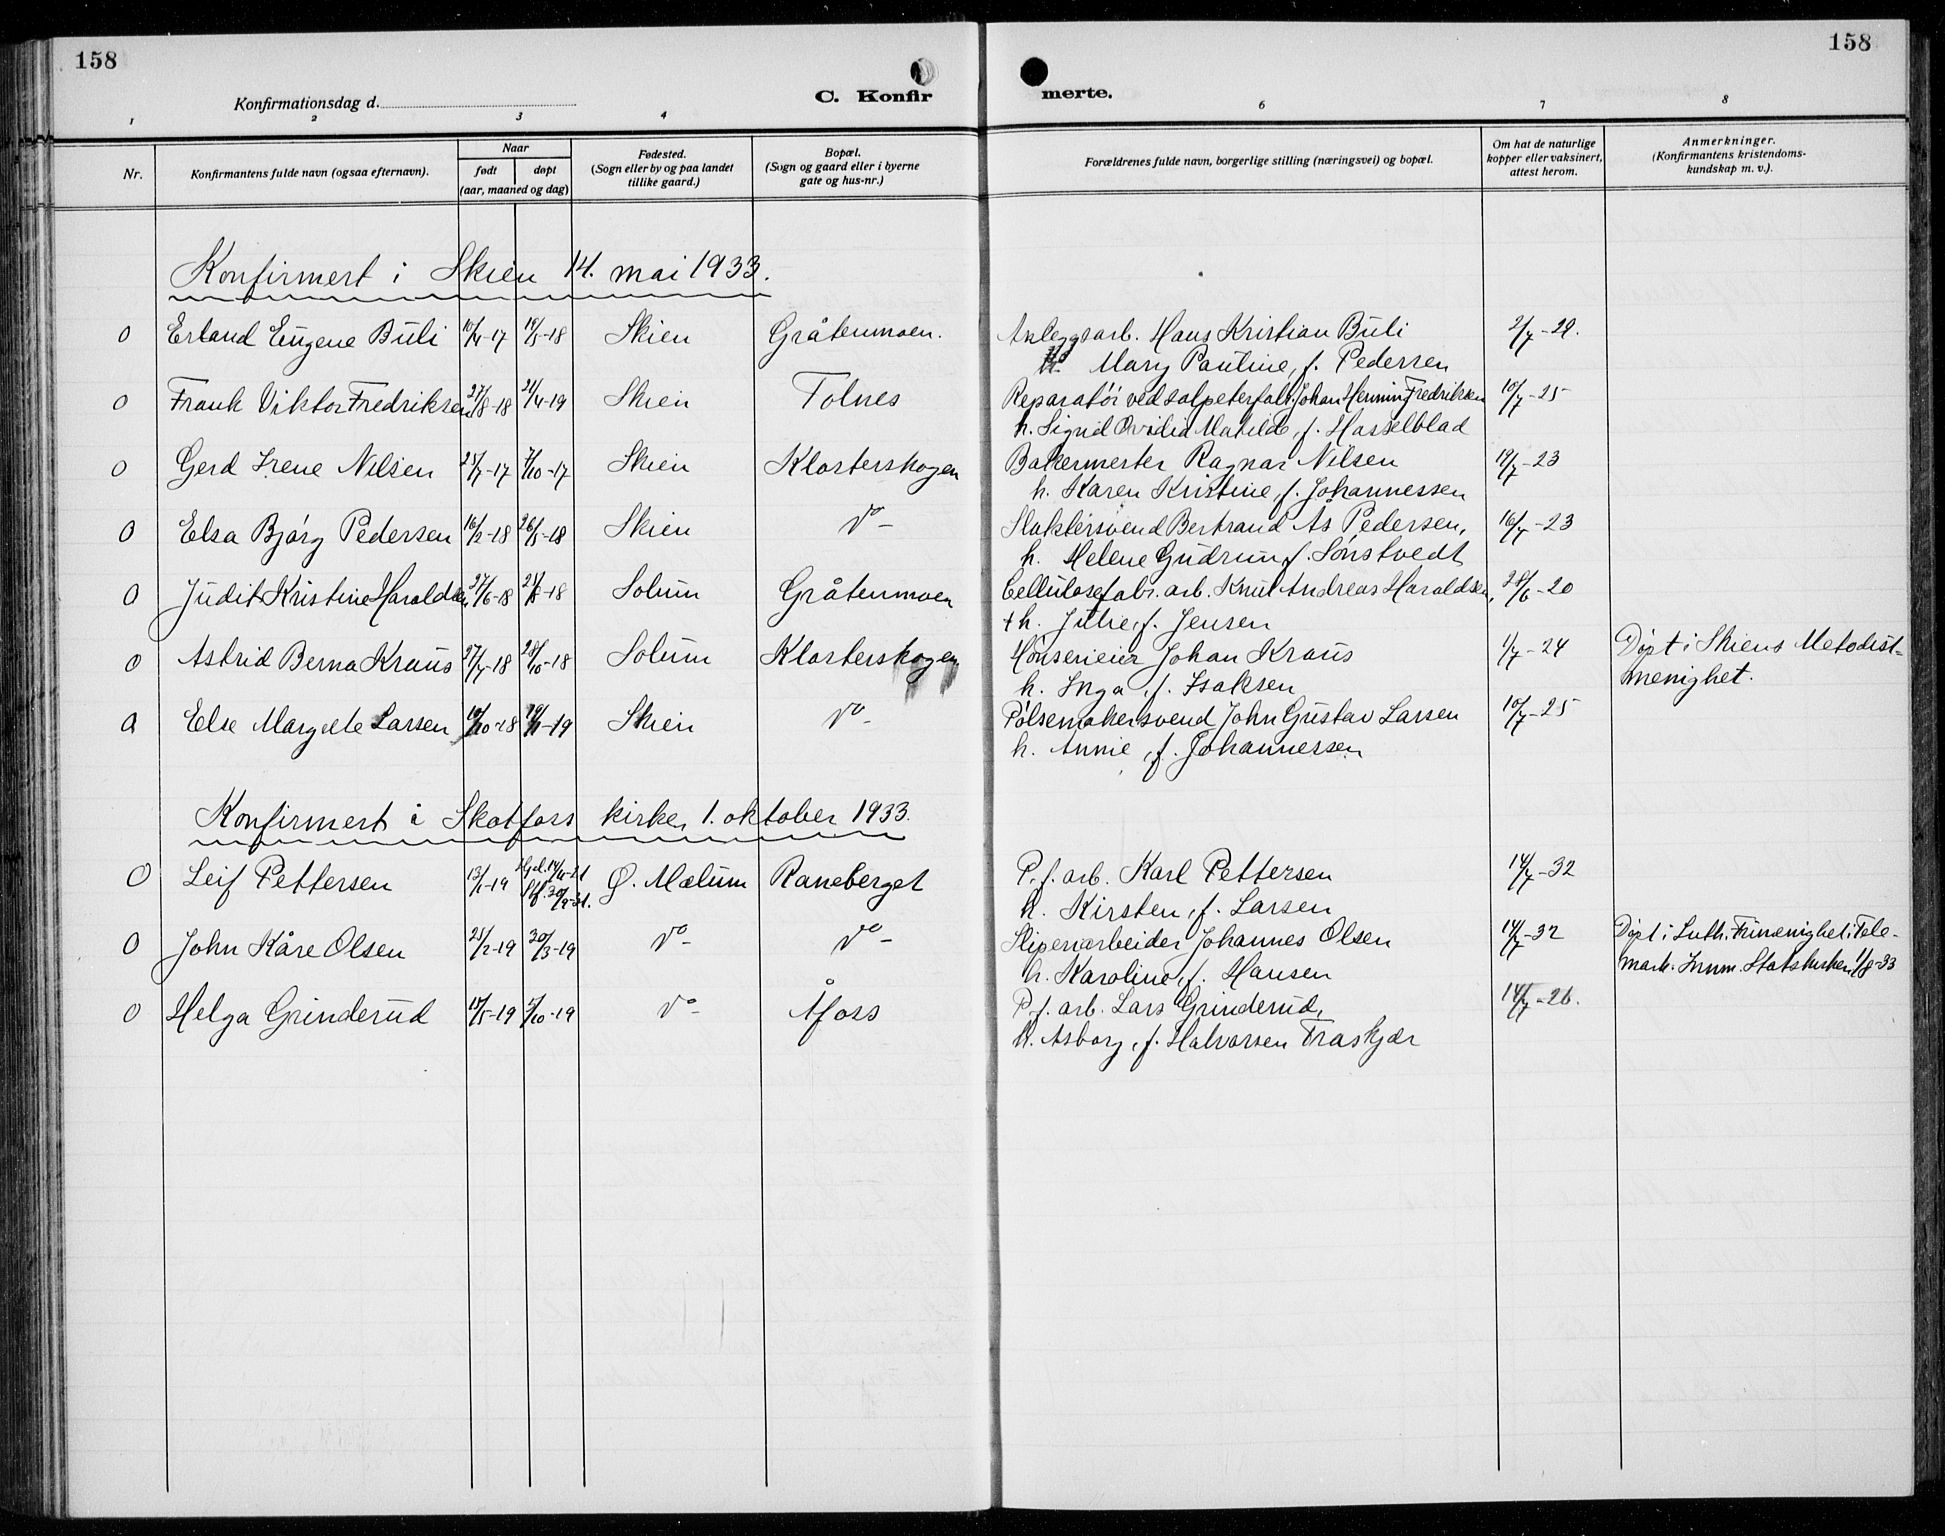 158
158
Konfirmationsdag d.
C. Konfir
merte.
1 2 3 4 6 7 8
Nr.
Konfirmantens fulde navn (ogsaa efternavn).
Naar
født
døpt
(aar, maaned og dag)
Fødested.
(Sogn eller by og paa landet
tillike gaard.)
Bopæl.
(Sogn og gaard eller i byerne
gate og hus-nr.)
Forældrenes fulde navn, borgerlige stilling (næringsvei) og bopæl.
Om hat de naturlige
kopper eller vaksinert,
attest herom.
Anmerkninger.
(Konfirmantens kristendoms-
kundskap m. v.).
Konfirmert i Skien 14. mai 1933.
0 Erland Eugene Buli -17 -18 Skien Gråtenmoen. Anleggsarb. Hans Kristian Buli 2/7-29.
h. Mary Pauline, f. Pedersen
0 Frank Viktor Fredriksen 27/8-18 21/4-19 Skien Tolnes Reparatør ved salpeterfabr. Johan Henning Fredriksen 10/7-25
h. Sigrid Ovidia Matilde, f. Hasselblad
0 Gerd Irene Nilsen 25/7-17 7/10-17 Skien Klosterskogen Bakermester Ragnar Nilsen 19/7-23
h. Karen Kristine, f. Johannessen
0 Elsa Bjørg Pedersen 16/2-18 26/5-18 Skien do- Slaktersvend Bertrand As Pedersen, 16/7-23
h. Helene Gudrun f. Sønstvedt
0 Judit Kristine Haraldsen 27/6-18 -18 Solum Gråtenmoen Cellulosefabr. arb. Knut Andreas Haraldsen, 28/6-20
+h. Julie, f. Jensen
0 Astrid Berna Kraus 27/7-18 28/10-18 Solum Klosterskogen Hønserieier Johan Kraus 1/7-24 Døpt i Skiens Metodist-
h. Inga, f. Isaksen menighet.
a Else Margrete Larsen 10/10-18 -19 Skien do- Pølsemakersvend John Gustav Larsen 10/7-25
h. Annie, f. Johannessen
Konfirmert i Skotfoss kirke, 1. oktober 1933.
0 Leif Pettersen 13/1-19 Hjd. 14/4-21 Stf. 30/9-21. Ø. Mælum Raneberget P. f. arb. Karl Pettersen 14/7-32
h. Kirsten, f. Larsen
0 John Kåre Olsen 25/2-19 30/3-19 do- do- Sliperiarbeider Johannes Olsen 14/7-32 Døpt i Luth. Frimenighet i Tele-
h. Karoline, f. Hansen mark. Innm. Statskirken 1/8-33
0 Helga Grinderud -19 5/10-19 do- Åfoss P. f. arb. Lars Grinderud, 14/7-26.
h. Asborg, f. Halvorsen Fraskjær